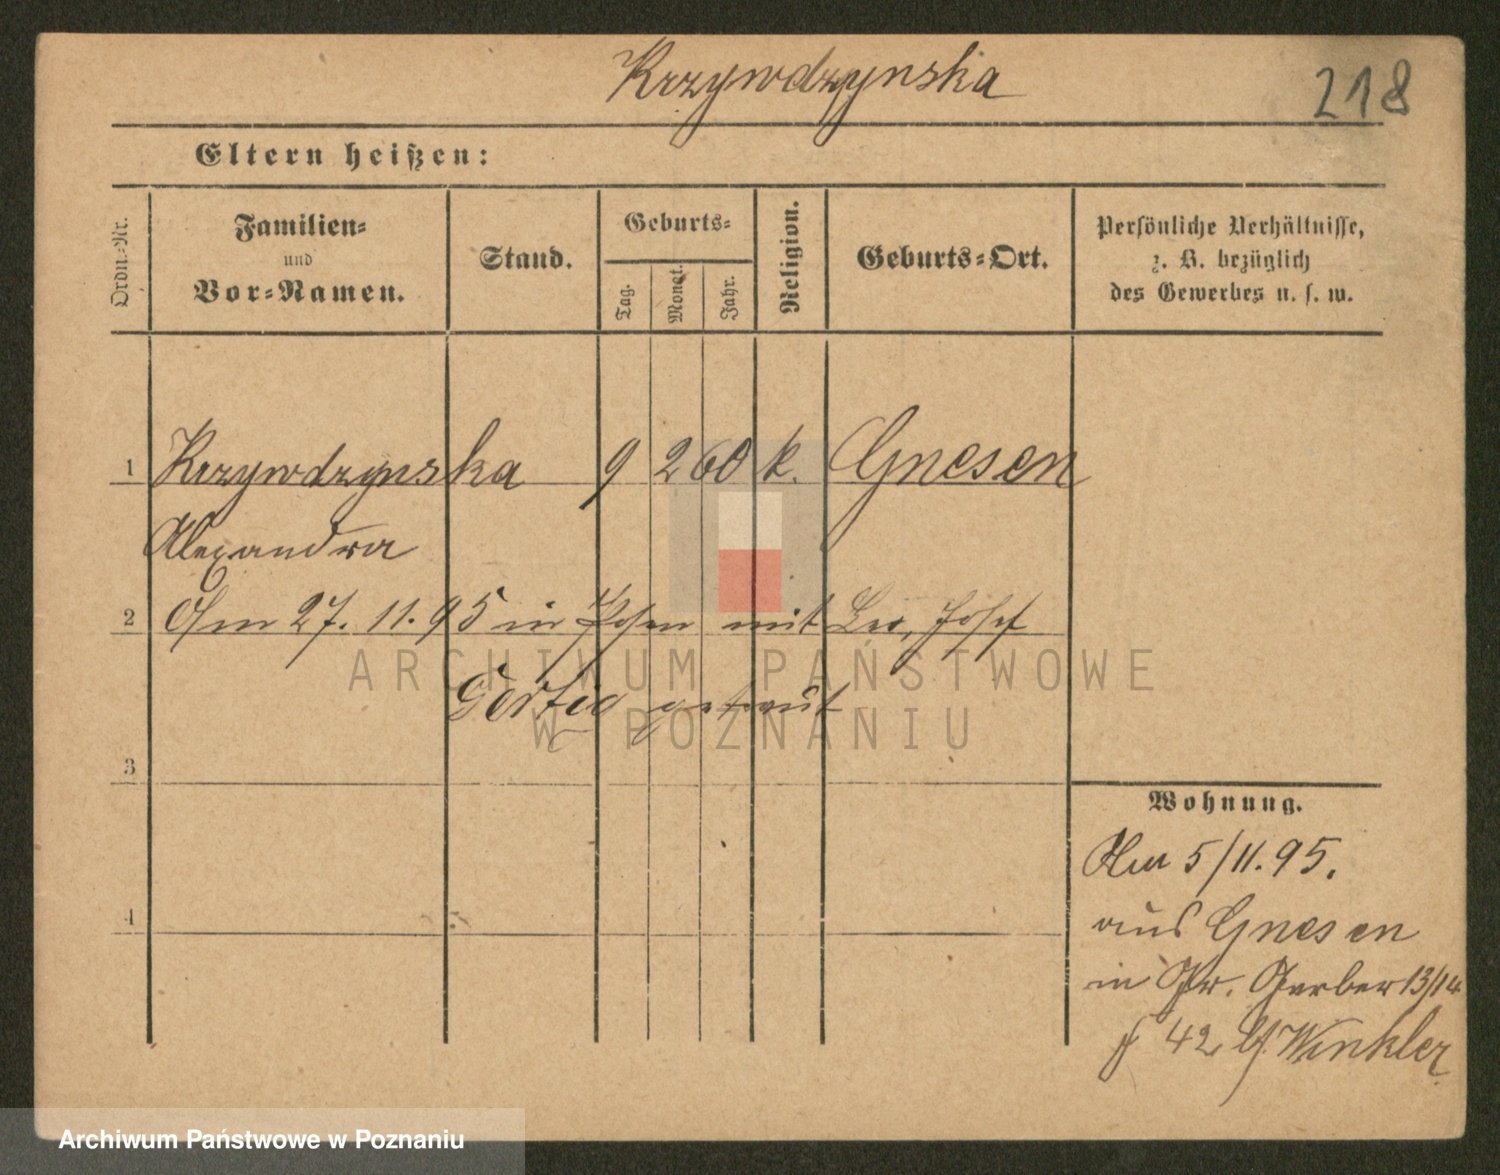 Krzywdzynska
218
Eltern heißen:
Ordn.-Nr.
Familien-
und
Vor-Namen.
Stand.
Geburts-
Tag.
Monat.
Jahr.
Religion.
Geburts-Ort.
Persönliche Verhältnisse,
z. B. bezüglich
des Gewerbes u. s. w.
1 Krzywdzynska 9 2 60 k. Gnesen
Alexandra
2 Am 27. 11. 95 in Posen mit Leo, Josef
getraut
3
4
Wohnung.
5/11. 95.
aus Gnesen
in Gr. Gerber 13/14
42 Winkler
ARCHIWUM PAŃSTWOWE
W POZNANIU
Archiwum Państwowe w Poznaniu